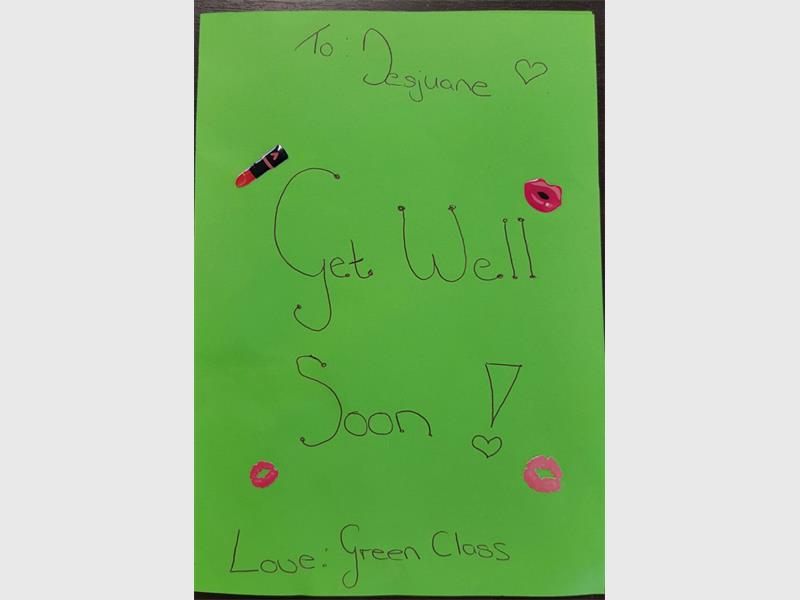 To: Desjuane
Get Well
Soon!
Love: Green Class